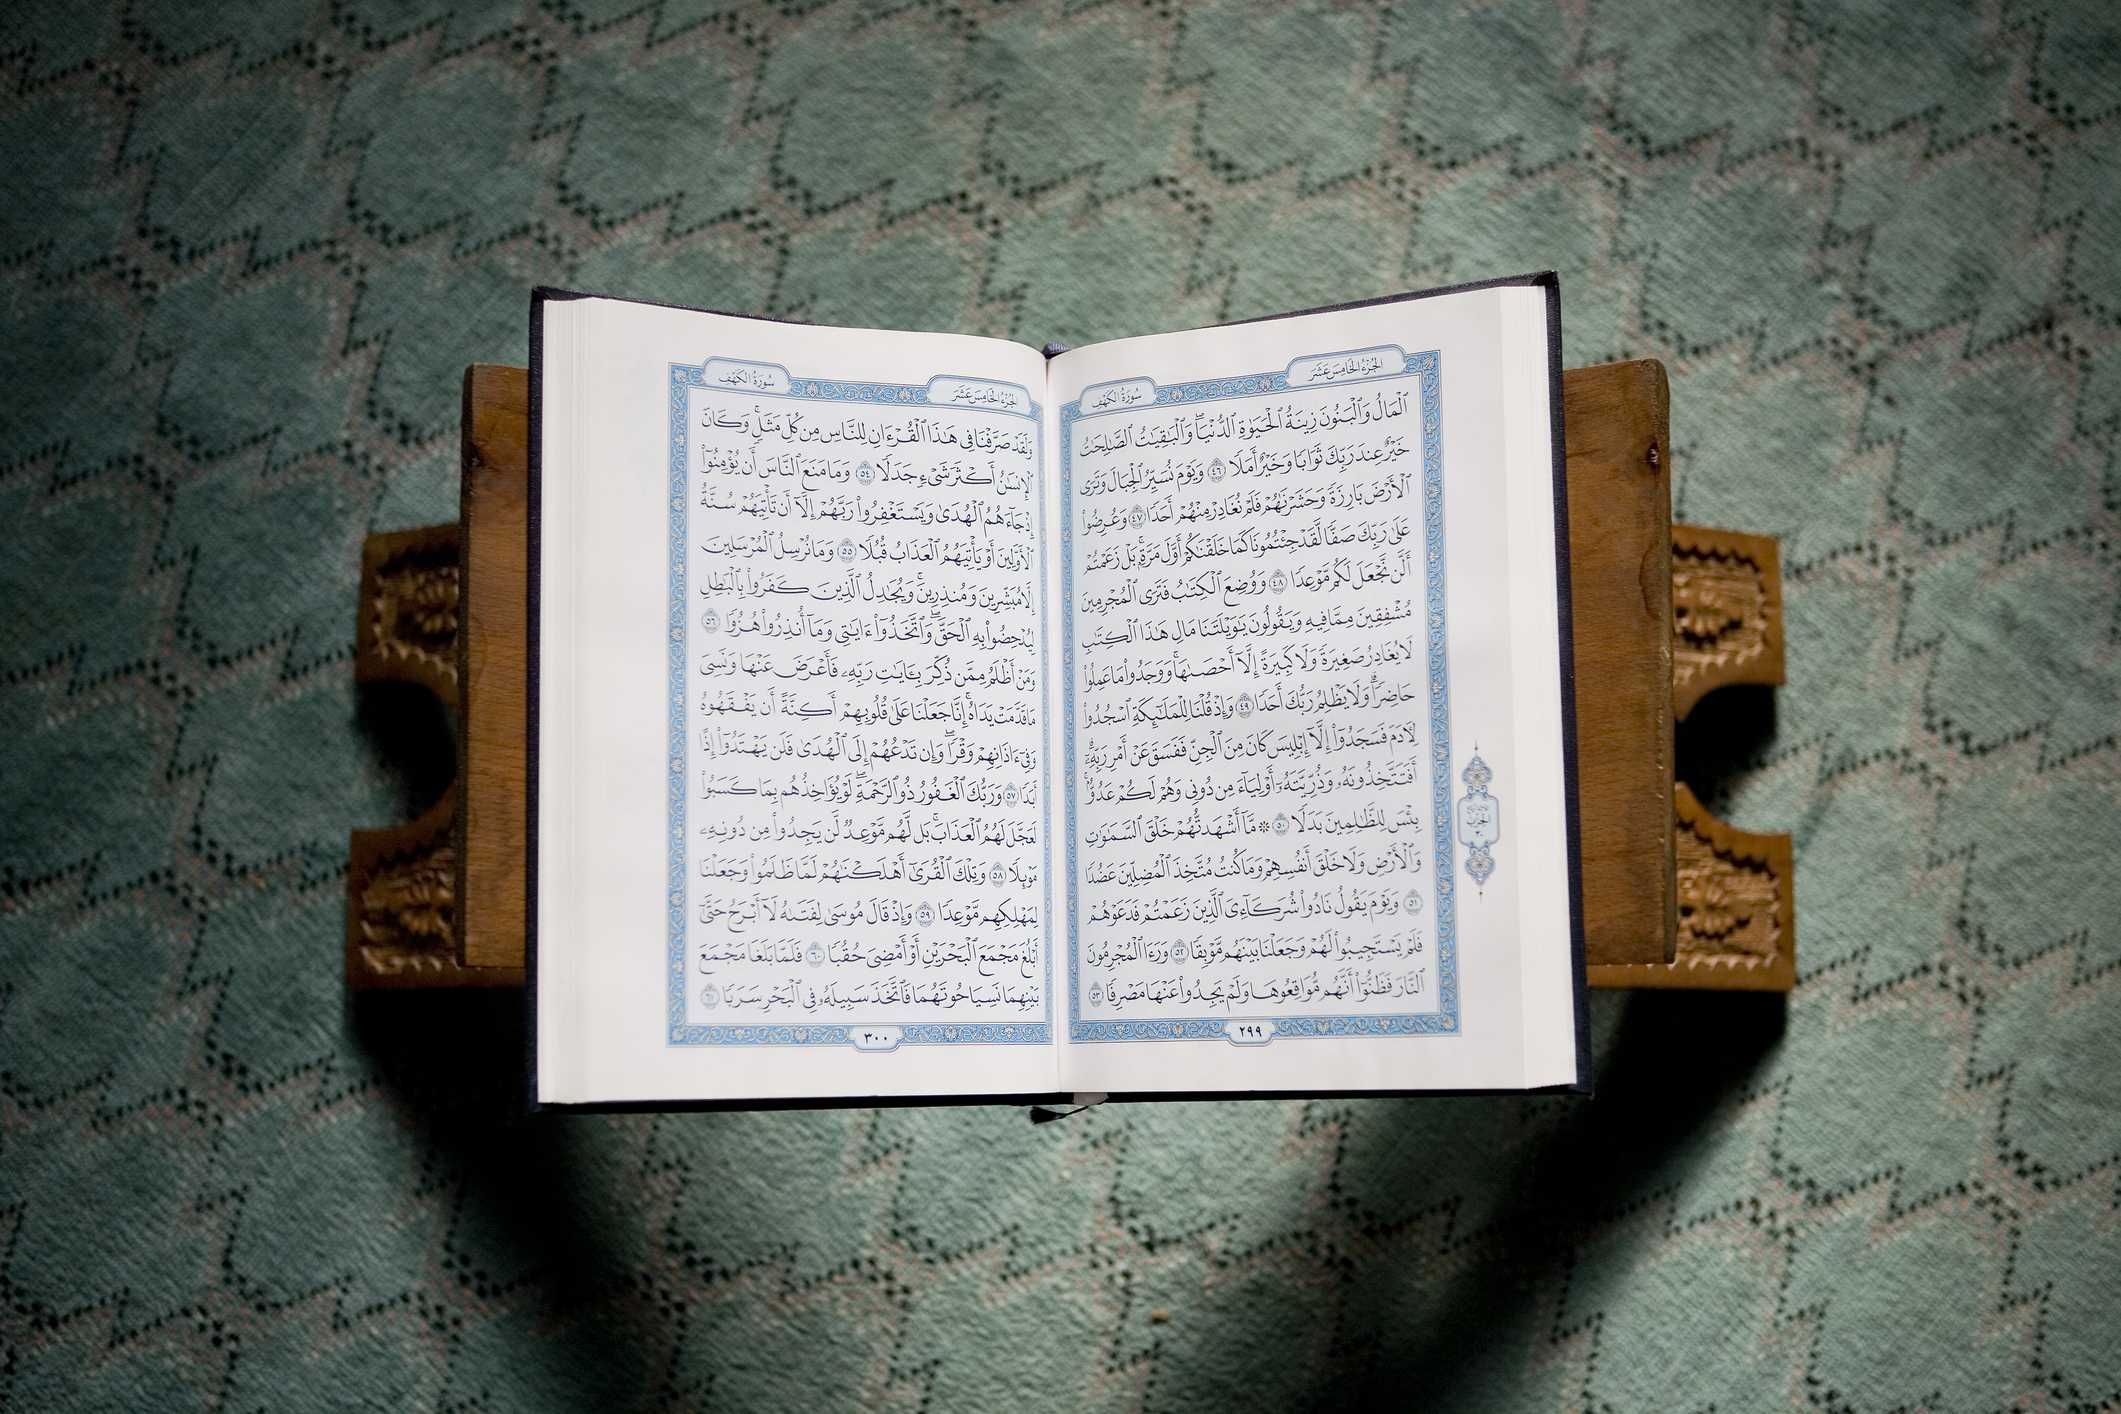 سُورَةُ الكَهْفِ
الجُزْءُ الخَامِسَ عَشَرَ
ٱلْمَالُ وَٱلْبَنُونَ زِينَةُ ٱلْحَيَوٰةِ ٱلدُّنْيَاۖ وَٱلْبَٰقِيَٰتُ ٱلصَّٰلِحَٰتُ
خَيْرٌ عِندَ رَبِّكَ ثَوَابًا وَخَيْرٌ أَمَلًا ٤٦ وَيَوْمَ نُسَيِّرُ ٱلْجِبَالَ وَتَرَى
ٱلْأَرْضَ بَارِزَةً وَحَشَرْنَٰهُمْ فَلَمْ نُغَادِرْ مِنْهُمْ أَحَدًا ٤٧ وَعُرِضُوا۟
عَلَىٰ رَبِّكَ صَفًّا لَّقَدْ جِئْتُمُونَا كَمَا خَلَقْنَٰكُمْ أَوَّلَ مَرَّةٍۭۚ بَلْ زَعَمْتُمْ
أَلَّن نَّجْعَلَ لَكُم مَّوْعِدًا ٤٨ وَوُضِعَ ٱلْكِتَٰبُ فَتَرَى ٱلْمُجْرِمِينَ
مُشْفِقِينَ مِمَّا فِيهِ وَيَقُولُونَ يَٰوَيْلَتَنَا مَالِ هَٰذَا ٱلْكِتَٰبِ
لَا يُغَادِرُ صَغِيرَةً وَلَا كَبِيرَةً إِلَّآ أَحْصَىٰهَاۚ وَوَجَدُوا۟ مَا عَمِلُوا۟
حَاضِرًاۗ وَلَا يَظْلِمُ رَبُّكَ أَحَدًا ٤٩ وَإِذْ قُلْنَا لِلْمَلَٰٓئِكَةِ ٱسْجُدُوا۟
لِأٓدَمَ فَسَجَدُوٓا۟ إِلَّآ إِبْلِيسَ كَانَ مِنَ ٱلْجِنِّ فَفَسَقَ عَنْ أَمْرِ رَبِّهِۦٓۗ
أَفَتَتَّخِذُونَهُۥ وَذُرِّيَّتَهُۥٓ أَوْلِيَآءَ مِن دُونِى وَهُمْ لَكُمْ عَدُوٌّۢۚ
بِئْسَ لِلظَّٰلِمِينَ بَدَلًا ٥٠ ۞ مَّآ أَشْهَدتُّهُمْ خَلْقَ ٱلسَّمَٰوَٰتِ
وَٱلْأَرْضِ وَلَا خَلْقَ أَنفُسِهِمْ وَمَا كُنتُ مُتَّخِذَ ٱلْمُضِلِّينَ عَضُدًا
٥١ وَيَوْمَ يَقُولُ نَادُوا۟ شُرَكَآءِىَ ٱلَّذِينَ زَعَمْتُمْ فَدَعَوْهُمْ
فَلَمْ يَسْتَجِيبُوا۟ لَهُمْ وَجَعَلْنَا بَيْنَهُم مَّوْبِقًا ٥٢ وَرَءَا ٱلْمُجْرِمُونَ
ٱلنَّارَ فَظَنُّوٓا۟ أَنَّهُم مُّوَاقِعُوهَا وَلَمْ يَجِدُوا۟ عَنْهَا مَصْرِفًا ٥٣
الحِزْب
٣٠
٢٩٩
سُورَةُ الكَهْفِ
الجُزْءُ الخَامِسَ عَشَرَ
وَلَقَدْ صَرَّفْنَا فِى هَٰذَا ٱلْقُرْءَانِ لِلنَّاسِ مِن كُلِّ مَثَلٍۚ وَكَانَ
ٱلْإِنسَٰنُ أَكْثَرَ شَىْءٍ جَدَلًا ٥٤ وَمَا مَنَعَ ٱلنَّاسَ أَن يُؤْمِنُوٓا۟
إِذْ جَآءَهُمُ ٱلْهُدَىٰ وَيَسْتَغْفِرُوا۟ رَبَّهُمْ إِلَّآ أَن تَأْتِيَهُمْ سُنَّةُ
ٱلْأَوَّلِينَ أَوْ يَأْتِيَهُمُ ٱلْعَذَابُ قُبُلًا ٥٥ وَمَا نُرْسِلُ ٱلْمُرْسَلِينَ
إِلَّا مُبَشِّرِينَ وَمُنذِرِينَۚ وَيُجَٰدِلُ ٱلَّذِينَ كَفَرُوا۟ بِٱلْبَٰطِلِ
لِيُدْحِضُوا۟ بِهِ ٱلْحَقَّۖ وَٱتَّخَذُوٓا۟ ءَايَٰتِى وَمَآ أُنذِرُوا۟ هُزُوًا ٥٦
وَمَنْ أَظْلَمُ مِمَّن ذُكِّرَ بِـَٔايَٰتِ رَبِّهِۦ فَأَعْرَضَ عَنْهَا وَنَسِىَ
مَا قَدَّمَتْ يَدَاهُۚ إِنَّا جَعَلْنَا عَلَىٰ قُلُوبِهِمْ أَكِنَّةً أَن يَفْقَهُوهُ
وَفِىٓ ءَاذَانِهِمْ وَقْرًاۖ وَإِن تَدْعُهُمْ إِلَى ٱلْهُدَىٰ فَلَن يَهْتَدُوٓا۟ إِذًا
أَبَدًا ٥٧ وَرَبُّكَ ٱلْغَفُورُ ذُو ٱلرَّحْمَةِۖ لَوْ يُؤَاخِذُهُم بِمَا كَسَبُوا۟
لَعَجَّلَ لَهُمُ ٱلْعَذَابَۚ بَل لَّهُم مَّوْعِدٌ لَّن يَجِدُوا۟ مِن دُونِهِۦ
مَوْئِلًا ٥٨ وَتِلْكَ ٱلْقُرَىٰٓ أَهْلَكْنَٰهُمْ لَمَّا ظَلَمُوا۟ وَجَعَلْنَا
لِمَهْلِكِهِم مَّوْعِدًا ٥٩ وَإِذْ قَالَ مُوسَىٰ لِفَتَىٰهُ لَآ أَبْرَحُ حَتَّىٰٓ
أَبْلُغَ مَجْمَعَ ٱلْبَحْرَيْنِ أَوْ أَمْضِىَ حُقُبًا ٦٠ فَلَمَّا بَلَغَا مَجْمَعَ
بَيْنِهِمَا نَسِيَا حُوتَهُمَا فَٱتَّخَذَ سَبِيلَهُۥ فِى ٱلْبَحْرِ سَرَبًا ٦١
٣٠٠